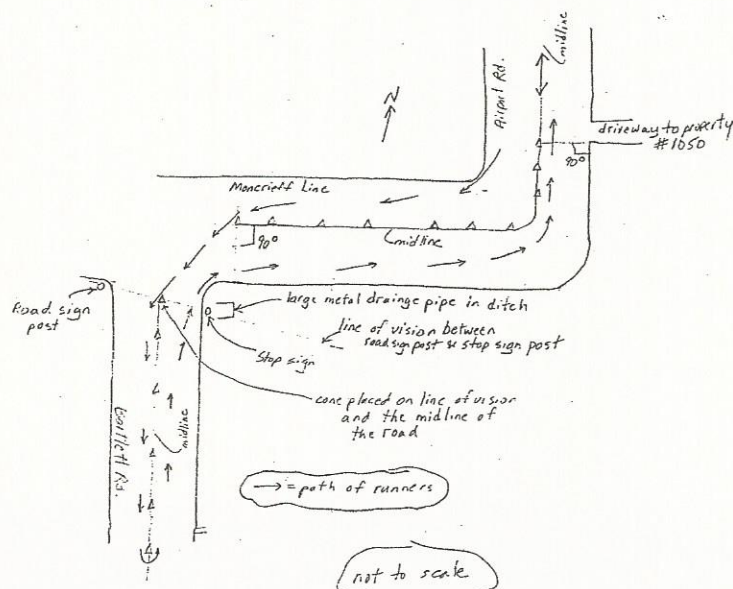 midline
Airport Rd.
N
driveway to property
#1050
90°
Moncrieff Line
90°
midline
Road sign
post
large metal drainge pipe in ditch
line of vision between
road sign post & stop sign post
Stop sign
cone placed on line of vision
and the midline of
the road
midline
Bartlett Rd.
→ = path of runners
not to scale